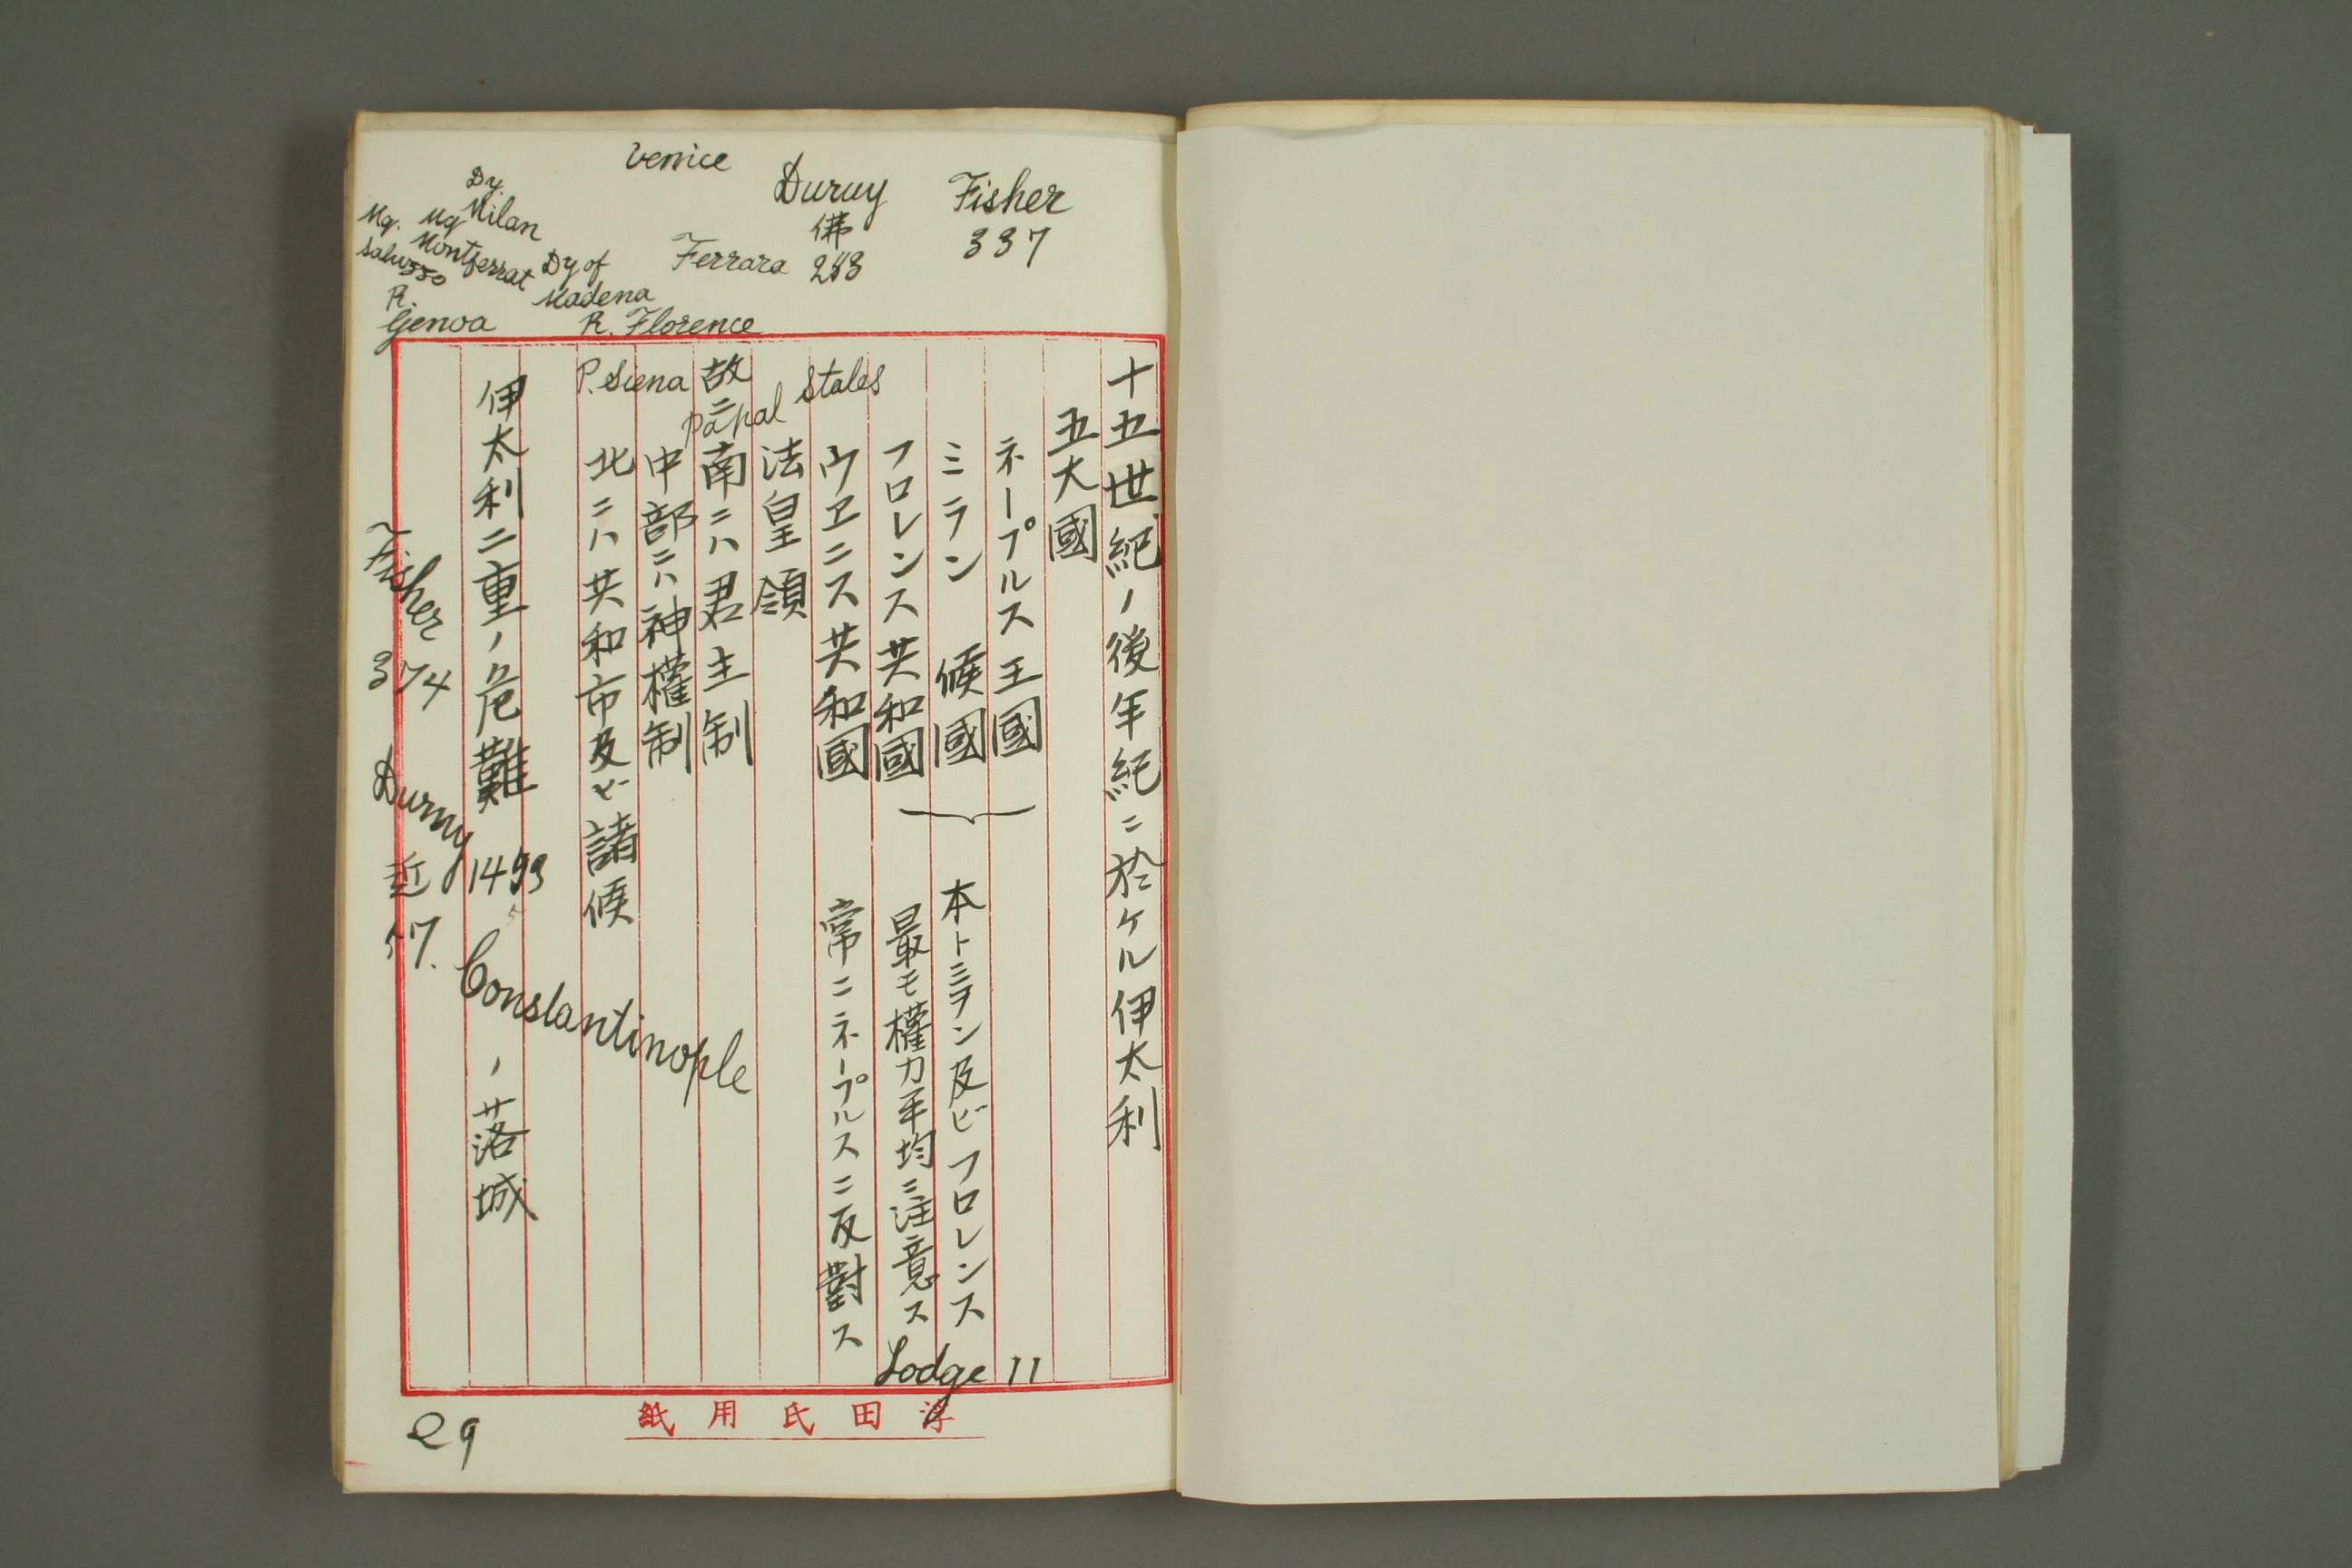 Fisher
337
Duruy
佛
283
Venice
Ferrara
Dy.
Milan
Mq.
Montferrat
Mq.
Saluzzo
Dy of
Madena
R.
Genoa
R. Florence
P. Siena
Papal States
十五世紀ノ後年紀ニ於ケル伊太利
五大國
ネープルス王國
ミラン 候國
フロレンス共和國
ウヱニス共和國
法皇領
本トミラン及ビフロレンス
最モ權力平均ニ注意ス
常ニネープルスニ反對ス
Lodge 11
故ニ南ニハ君主制
中部ニハ神權制
北ニハ共和市及ビ諸候
伊太利二重ノ危難 1493 Constantinople ノ落城
Fisher
374
Duruy
近
57.
29
浮田氏用紙